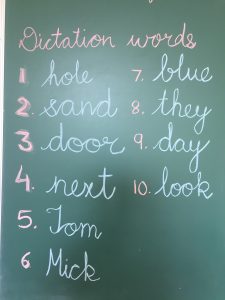 Dictation words
1 hole
2. sand
3 door
4. next
5. Tom
6 Mick
7. blue
8. they
9. day
10. look